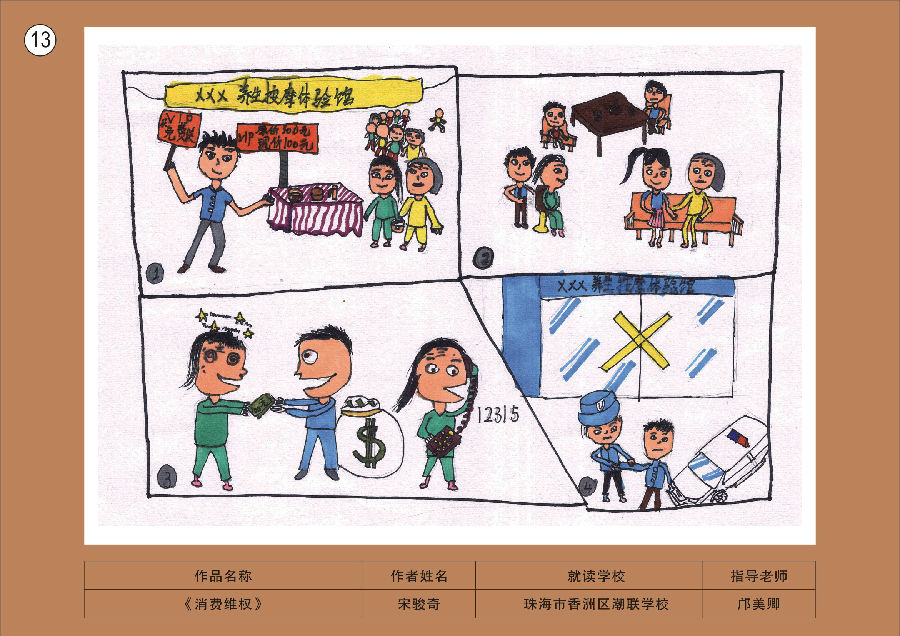 13
XXX 养生按摩体验馆
VIP
免费
VIP 原价500元
现价100元
1
2
XXX 养生按摩体验馆
$
12315
3
4
作品名称
作者姓名
就读学校
指导老师
《消费维权》
宋骏奇
珠海市香洲区潮联学校
邝美卿